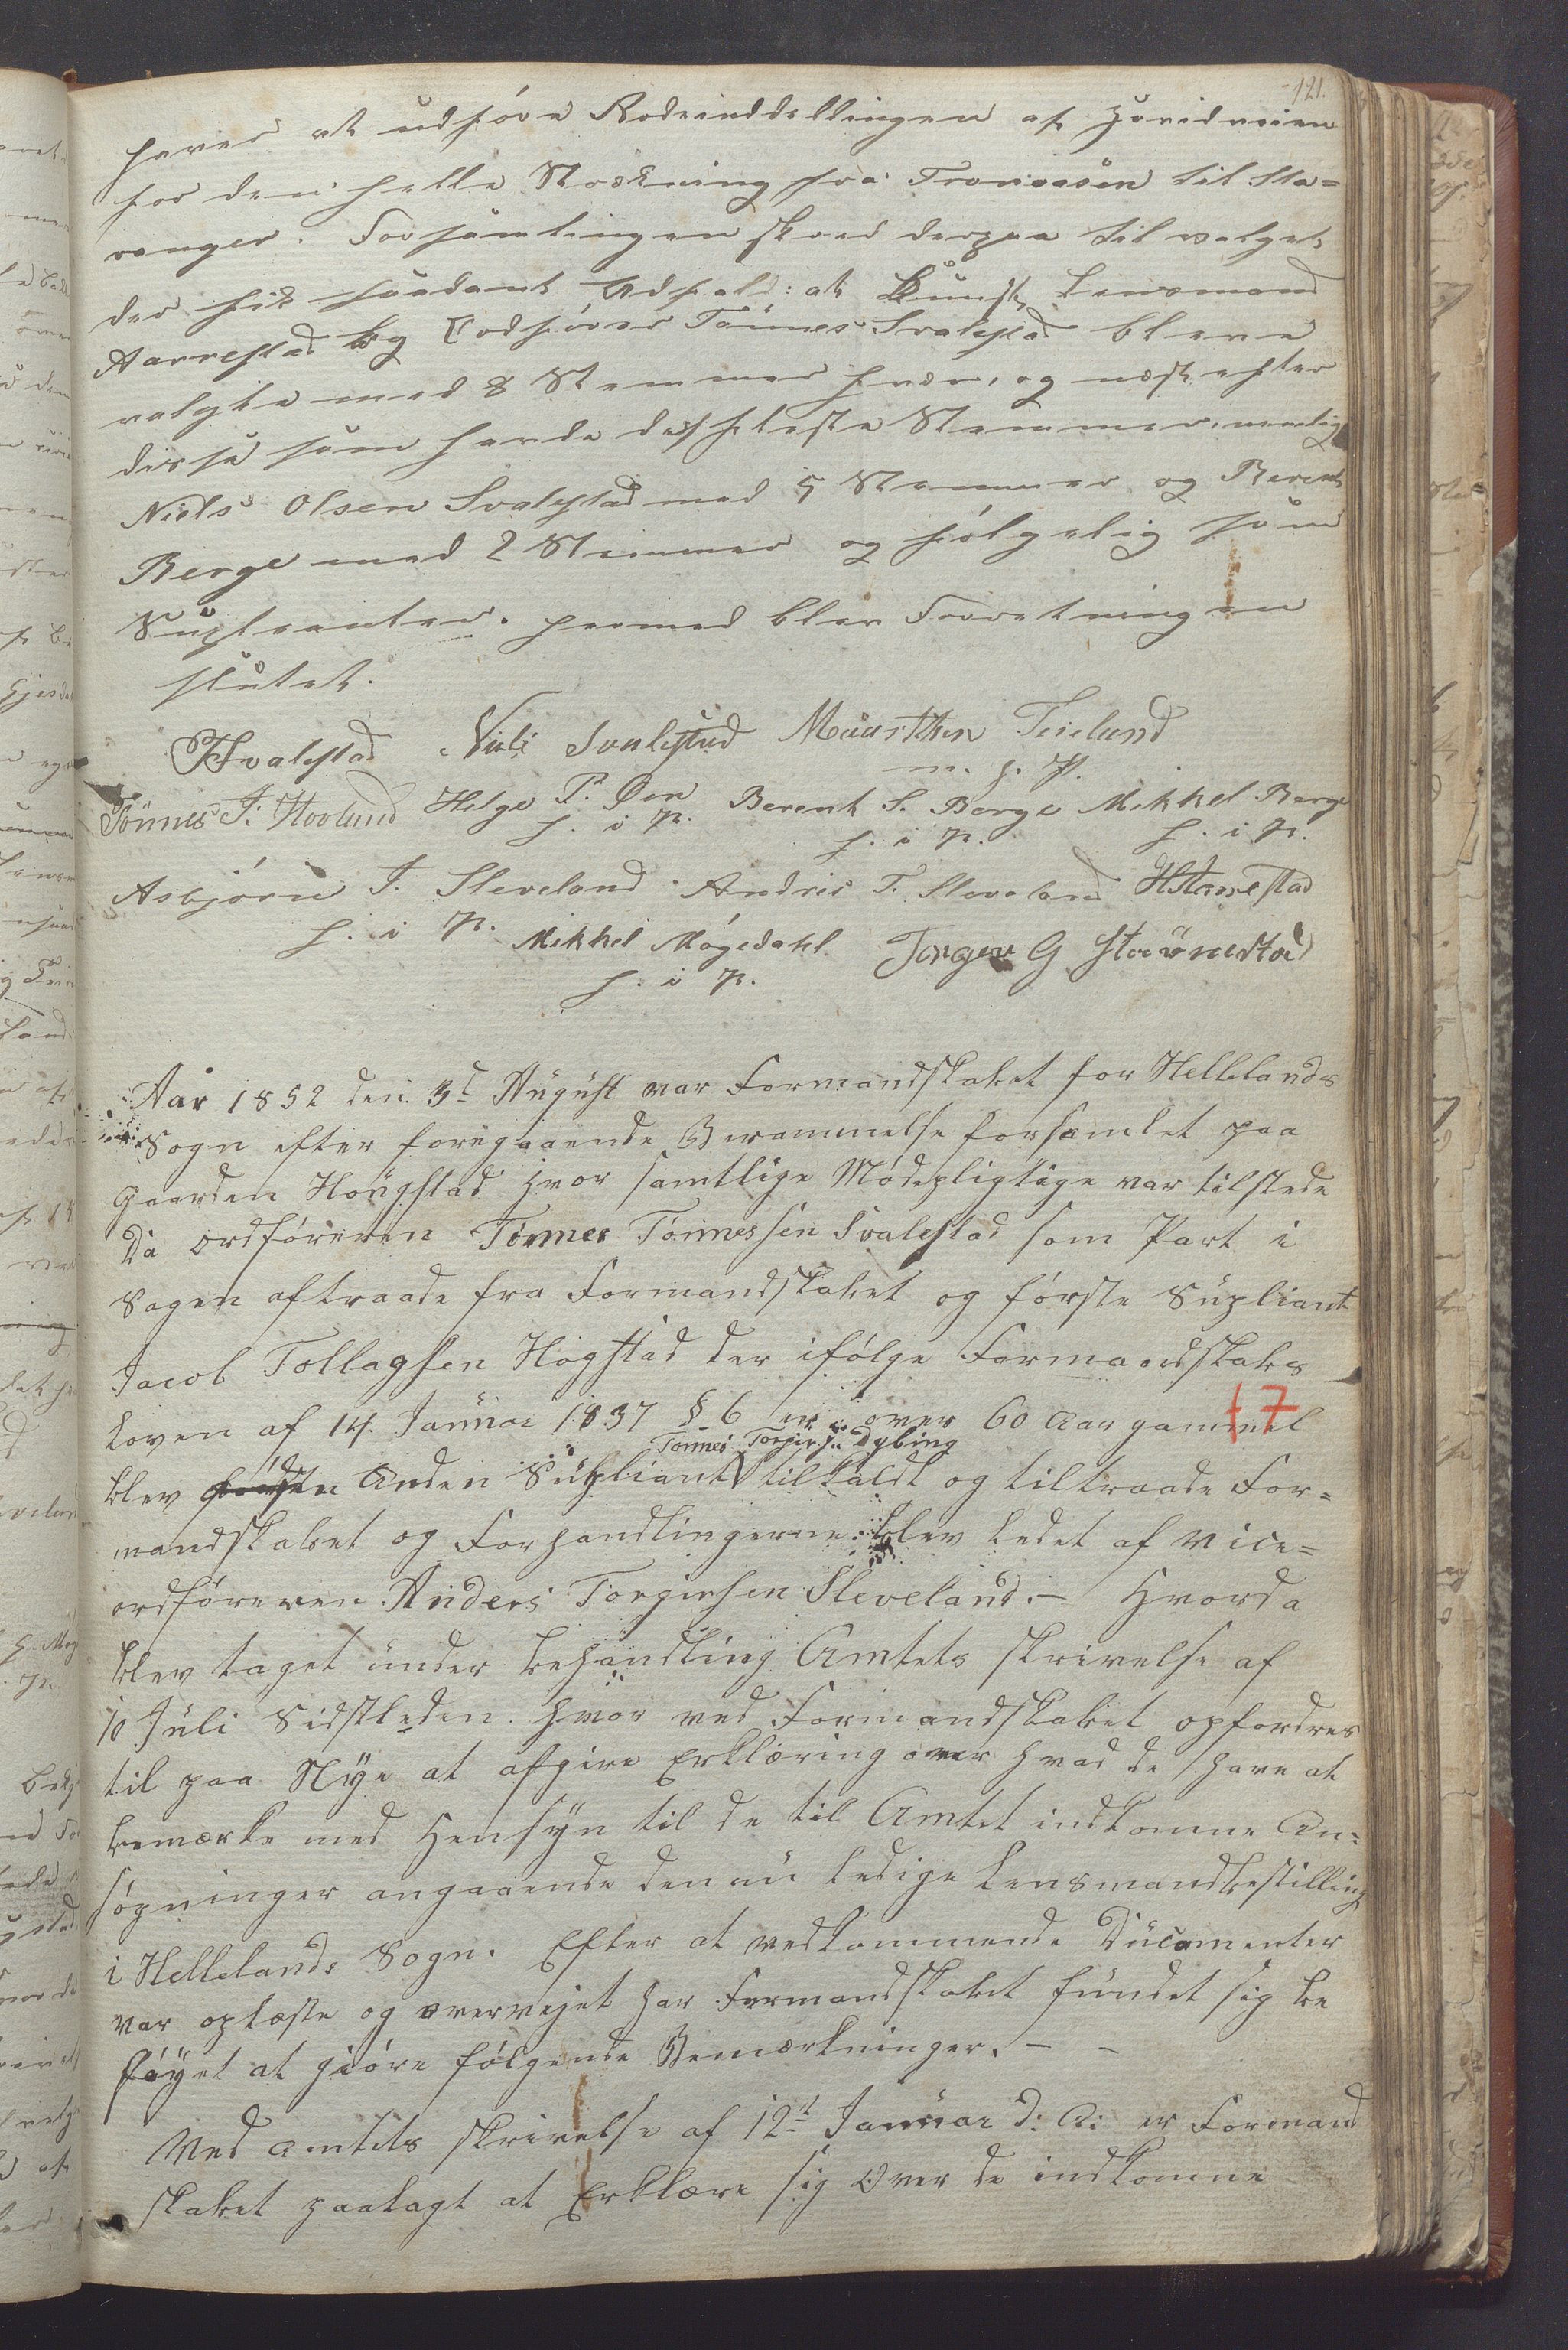 121.
haver at udføre Rodeinddellingen af Hovidveien
for den helle Strækning fra Tronvasen til Sta=
vanger. Forsamlingen skred derpaa til valget
der fik saadant Udfald: at Constz Lensmand
Aarrestad og Ordfører Tönnes Svalestad bleve
valgte med 8 Stemmer hver, og næst efter
disse som havde de fleste Stemmer, nemlig
Niels Olsen Svalestad med 5 Stemmer og Berent
Berge med 2 Stemmer og følgelig som
Supleanter. hermed blev Forretningen
slutet.
TSvalestad Niels Svalestad Mauritsen Teielund
m. p. P.
Tönnes T. Hovland Helge P. Øen Berent S. Berge Mikkel Berge
h. i P. h. i P. h. i P.
Asbjørn T. Sleveland Andres T. Sleveland HStavnestad
h. i P. Mikkel Mögedahl Torger G Staünestad
h. i P.
Aar 1852 den 3d August var Formandskabet for Hellelands
Sogn efter foregaaende Berammelse forsamlet paa
Gaarden Høugstad hvor samtlige Mødepligtige var tilstede
Da ordføreren Tönnes Tönnessen Svalestad som Part i
Sagen aftraade fra Formandskabet og første Supliant
Jacob Tollagsen Høgstad der ifølge Formandskabs
Loven af 14. Januar 1837 § 6 er over 60 Aar gammel
17
Tönnes Torgersen Dybing
blev første Anden Supliant tilkaldt og tiltraade For=
mandskabet og Forhandlingerne blev ledet af Vice=
ordføreren Anders Torgersen Sleveland. – Hvorda
blev taget under behandling Amtets skrivelse af
10 Juli Sidstleden. hvor ved Formandskabet opfordres
til paa Nye at afgive Erklæring over hvad de have at
bemærke med Hensyn til de til Amtet indkomne An=
søgninger angaaende den nu ledige Lensmandbestilling
i Hellelands Sogn. Efter at vedkommende Documenter
var oplæste og overvejet har Formandskabet fundet sig be
føyet at giøre følgende Bemærkninger. – –
Ved Amtets skrivelse af 12t Januar d: A: er Formand
skabet paalagt at Erklære sig over de indkomne